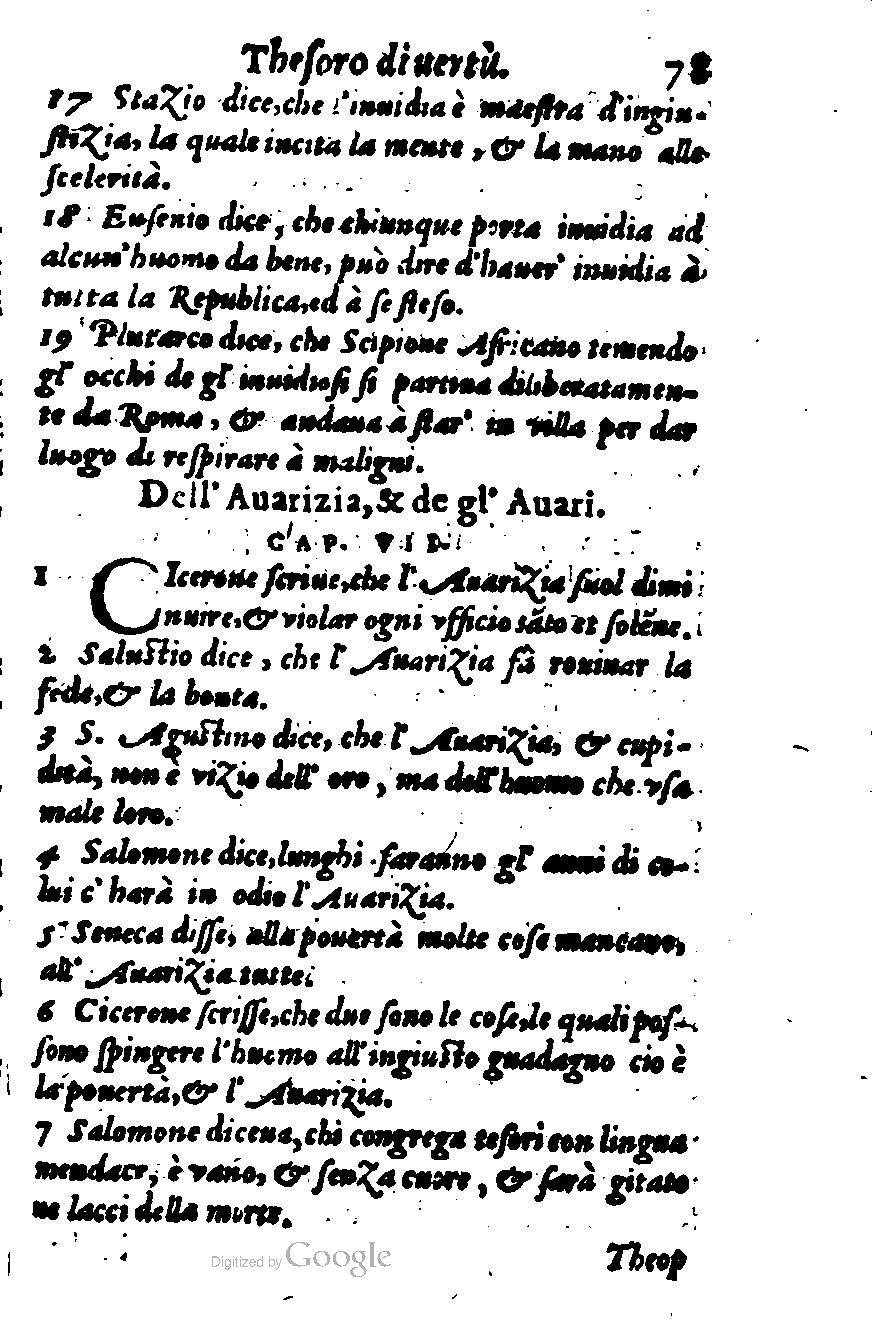 Theſoro di uertù. 78
17 Stazio dice, che l'inuidia è maeſtra d'ingiu-
ſtizia, la quale incita la mente, & la mano alle
ſcelerità.
18 Euſenio dice, che chiunque porta inuidia ad
alcun'huomo da bene, può dire d'hauer' inuidia à
tutta la Republica, ed à ſe ſteſo.
19 Plutarco dice, che Scipione Africano temendo
gl' occhi de gl' inuidioſi ſi partiua diliberatamen-
te da Roma, & andaua à ſtar' in villa per dar
luogo di reſpirare à maligni.
Dell' Auarizia, & de gl' Auari.
CAP. VII.
1 CIcerone ſcriue, che l' Auarizia ſuol dimi
nuire, & violar ogni vfficio sāto et ſolēne.
2 Saluſtio dice, che l' Auarizia fà rouinar la
fede, & la bonta.
3 S. Aguſtino dice, che l' Auarizia, & cupi-
dità, non è vizio dell' oro, ma dell'huomo che vſa
male loro.
4 Salomone dice, lunghi ſaranno gl' anni di co-
lui c' harà in odio l' Auarizia.
5 Seneca diſſe, alla pouertà molte coſe mancano,
all' Auarizia tutte.
6 Cicerone ſcriſſe, che due ſono le coſe, le quali poſ-
ſono ſpingere l'huomo all'ingiuſto guadagno cio è
la pouertà, & l' Auarizia.
7 Salomone diceua, chi congrega teſori con lingua
mendace, è vano, & ſenza cuore, & ſarà gitato
ne lacci della morte.
Theop
Digitized by Google